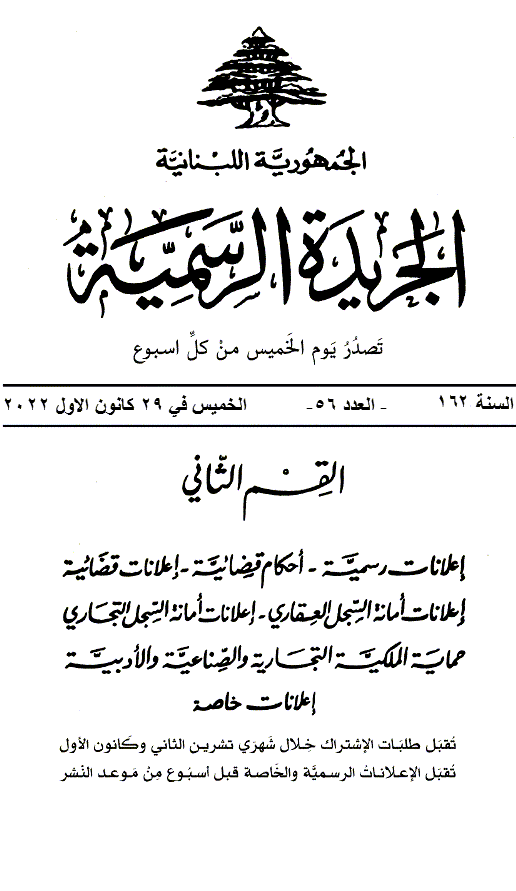 الجمهوريَّة اللبنانيَّة
الجريدة الرسميَّة
تَصدُرُ يَوم الخَميس منْ كلِّ اسبوع
السنة ١٦٢ - العدد ٥٦ - الخميس في ٢٩ كانون الاول ٢٠٢٢
القِسْم الثَّاني
إعلانات رسميَّة - أحكام قضائيَّة - إعلانات قضائية
إعلانات أمانة السِّجل العقاري - إعلانات أمانة السِّجل التجاري
حماية الملكيَّة التجارية والصِّناعيَّة والأدبيَّة
إعلانات خاصة
تُقبَل طلبَات الإشتراك خِلال شَهرَي تشرين الثاني وكَانون الأول
تُقبَل الإعلاناتُ الرسميَّة والخَاصة قبل أسبُوع مِنْ مَوعد النَشر